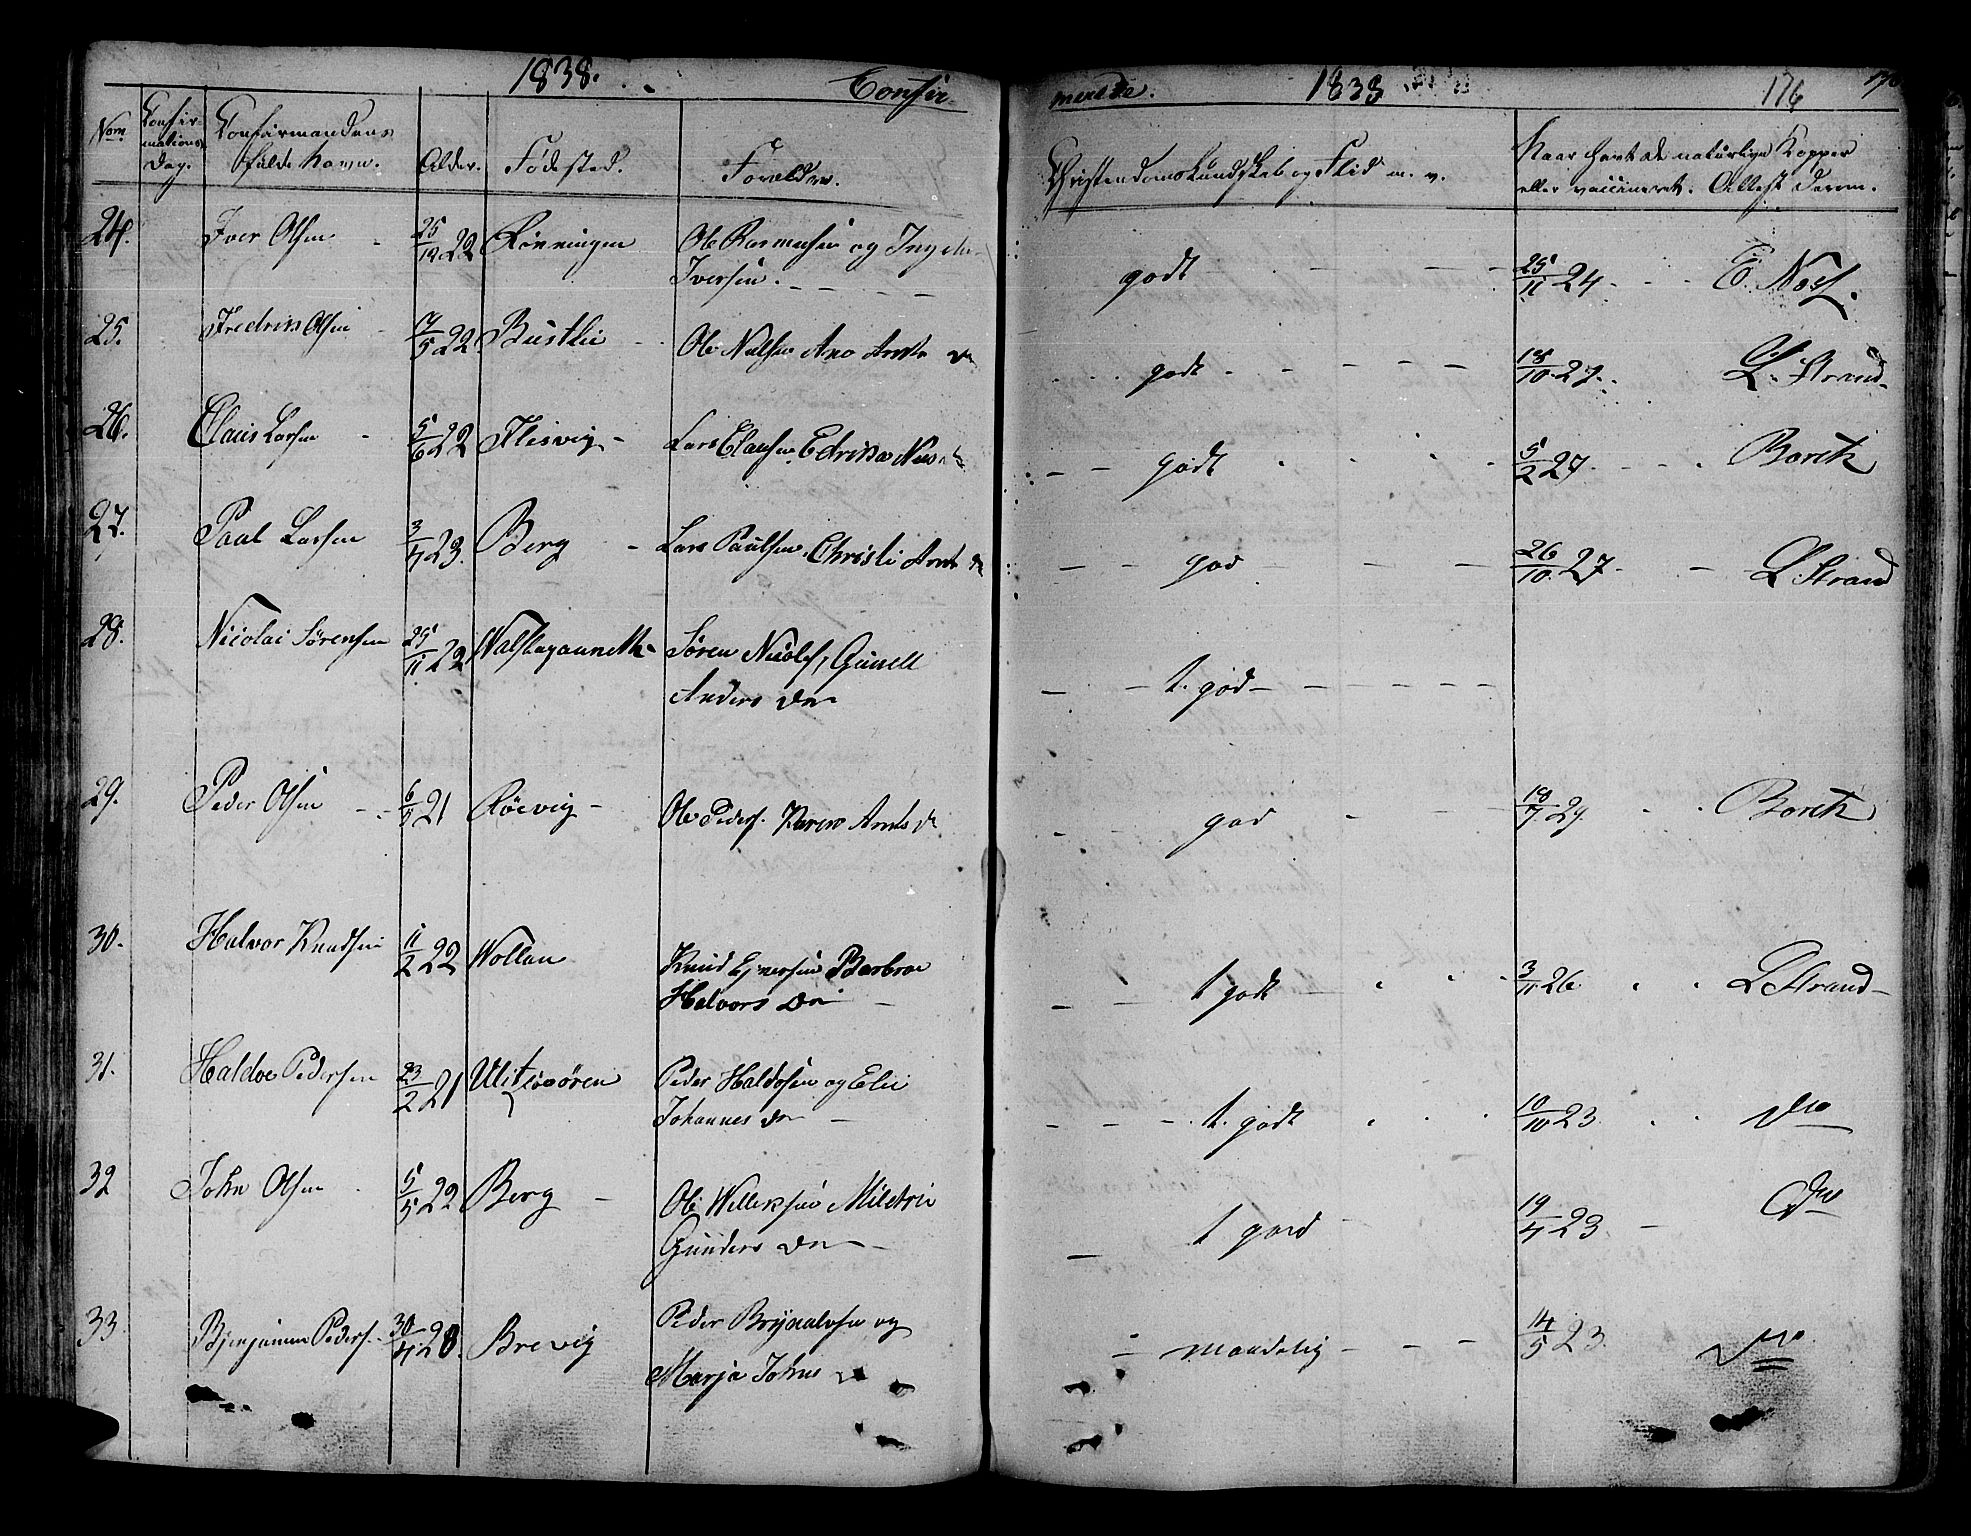 1838. Confir-
merede. 1838 176
Nom Confir-
mations
Dag. Confirmandens
fulde Navn. Alder. Fødested. Forældre. Christendomskundskab og Flid m. v. Naar havt de naturlige Kopper
eller vaccineret. Attest derom.
24. Iver Olsen 25/12 22 Rönningen Ole Rasmusen og
Iversen. godt 25/11 24
25. Fredrik Olsen 5 22 Bustlie Ole Nielsen Ane Arnts D godt 18/10 27. L. Strand
26. Claus Larsen 5/6 22 Flesvig Lars Clausen godt 5/2 27. Boreth
27. Paal Larsen 3/4 23. Berg Lars Paulsen, Christi Arnts D god 26/10 27. L Strand
28. Nicolai Sörensen 25/11 22 Sören Nicols, Gunell
Anders Dr t. god
29. Peder Olsen 21 Röevig Ole Peders. Karen Arnts D god 18/7 29 Boreth
30. Halvor Knudsen 11/2 22 Wollan Knud Barbroe
Halvors Dr t godt 3/11 26 L Strand
31. Haldoe Pedersen 23/2 21 Peder Haldosen og Elii
Johannes Dr t. godt 10/10 23. Do
32 John Olsen 5/5 22 Berg Ole Willeksen Mildrie
Gunders Dr t god 19/4 23. Do
33 Bjenjamin Peders. 30/4 20. Brevig Peder Brynalvsen og
Marja Johns D maadelig 14/5 23. Do